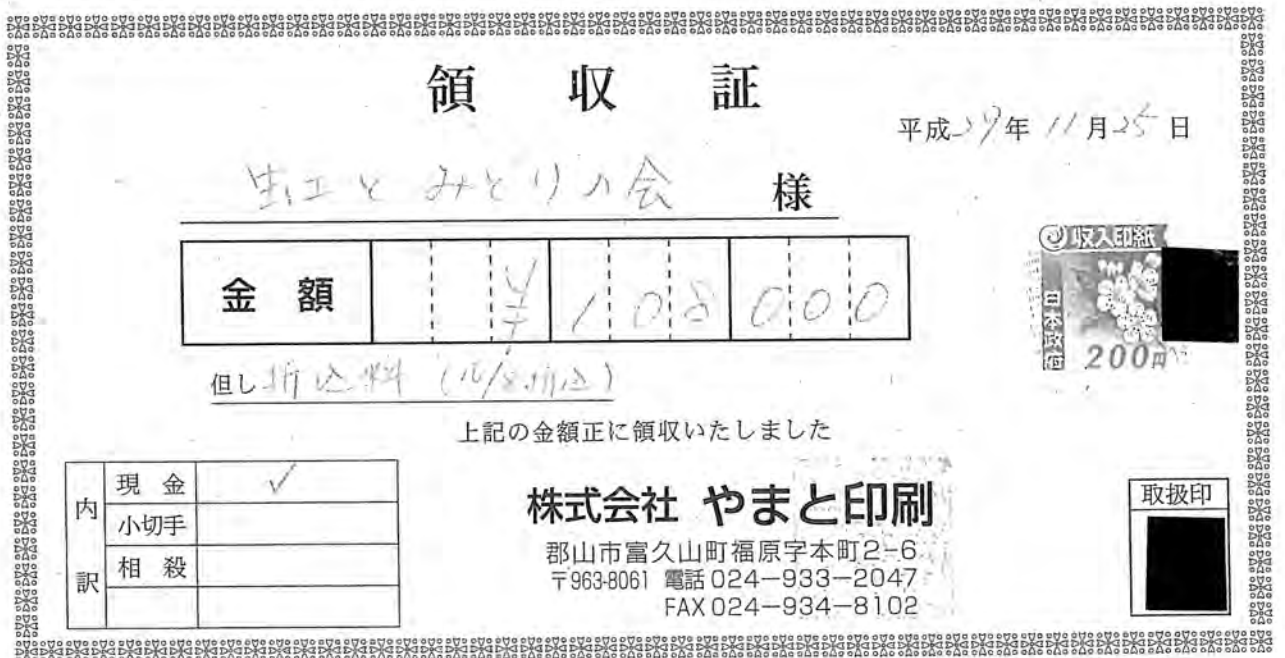 領収証
平成29年11月25日
虹とみどりの会 様
金額 ¥108000
但し 折込料 (12/8折込)
収入印紙
日本政府
200円
上記の金額正に領収いたしました
内訳
現金 ✓
小切手
相殺
株式会社 やまと印刷
郡山市富久山町福原字本町2-6
〒963-8061 電話024-933-2047
FAX024-934-8102
取扱印